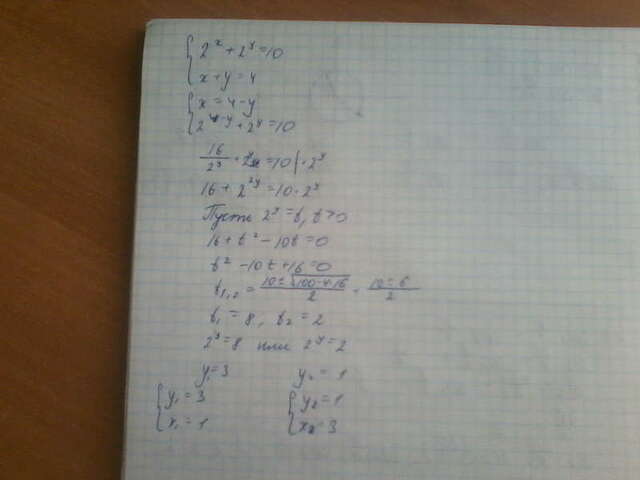 { 2^x + 2^y = 10
x + y = 4
{ x = 4 - y
2^{4-y} + 2^y = 10
16/2^y + 2^y = 10 | · 2^y
16 + 2^{2y} = 10 · 2^y
Пусть 2^y = t, t > 0
16 + t^2 - 10t = 0
t^2 - 10t + 16 = 0
t_{1,2} = (10 ± √(100-4·16))/2 = (10 ± 6)/2
t_1 = 8, t_2 = 2
2^y = 8 или 2^y = 2
y_1 = 3 y_2 = 1
{ y_1 = 3 { y_2 = 1
x_1 = 1 x_2 = 3